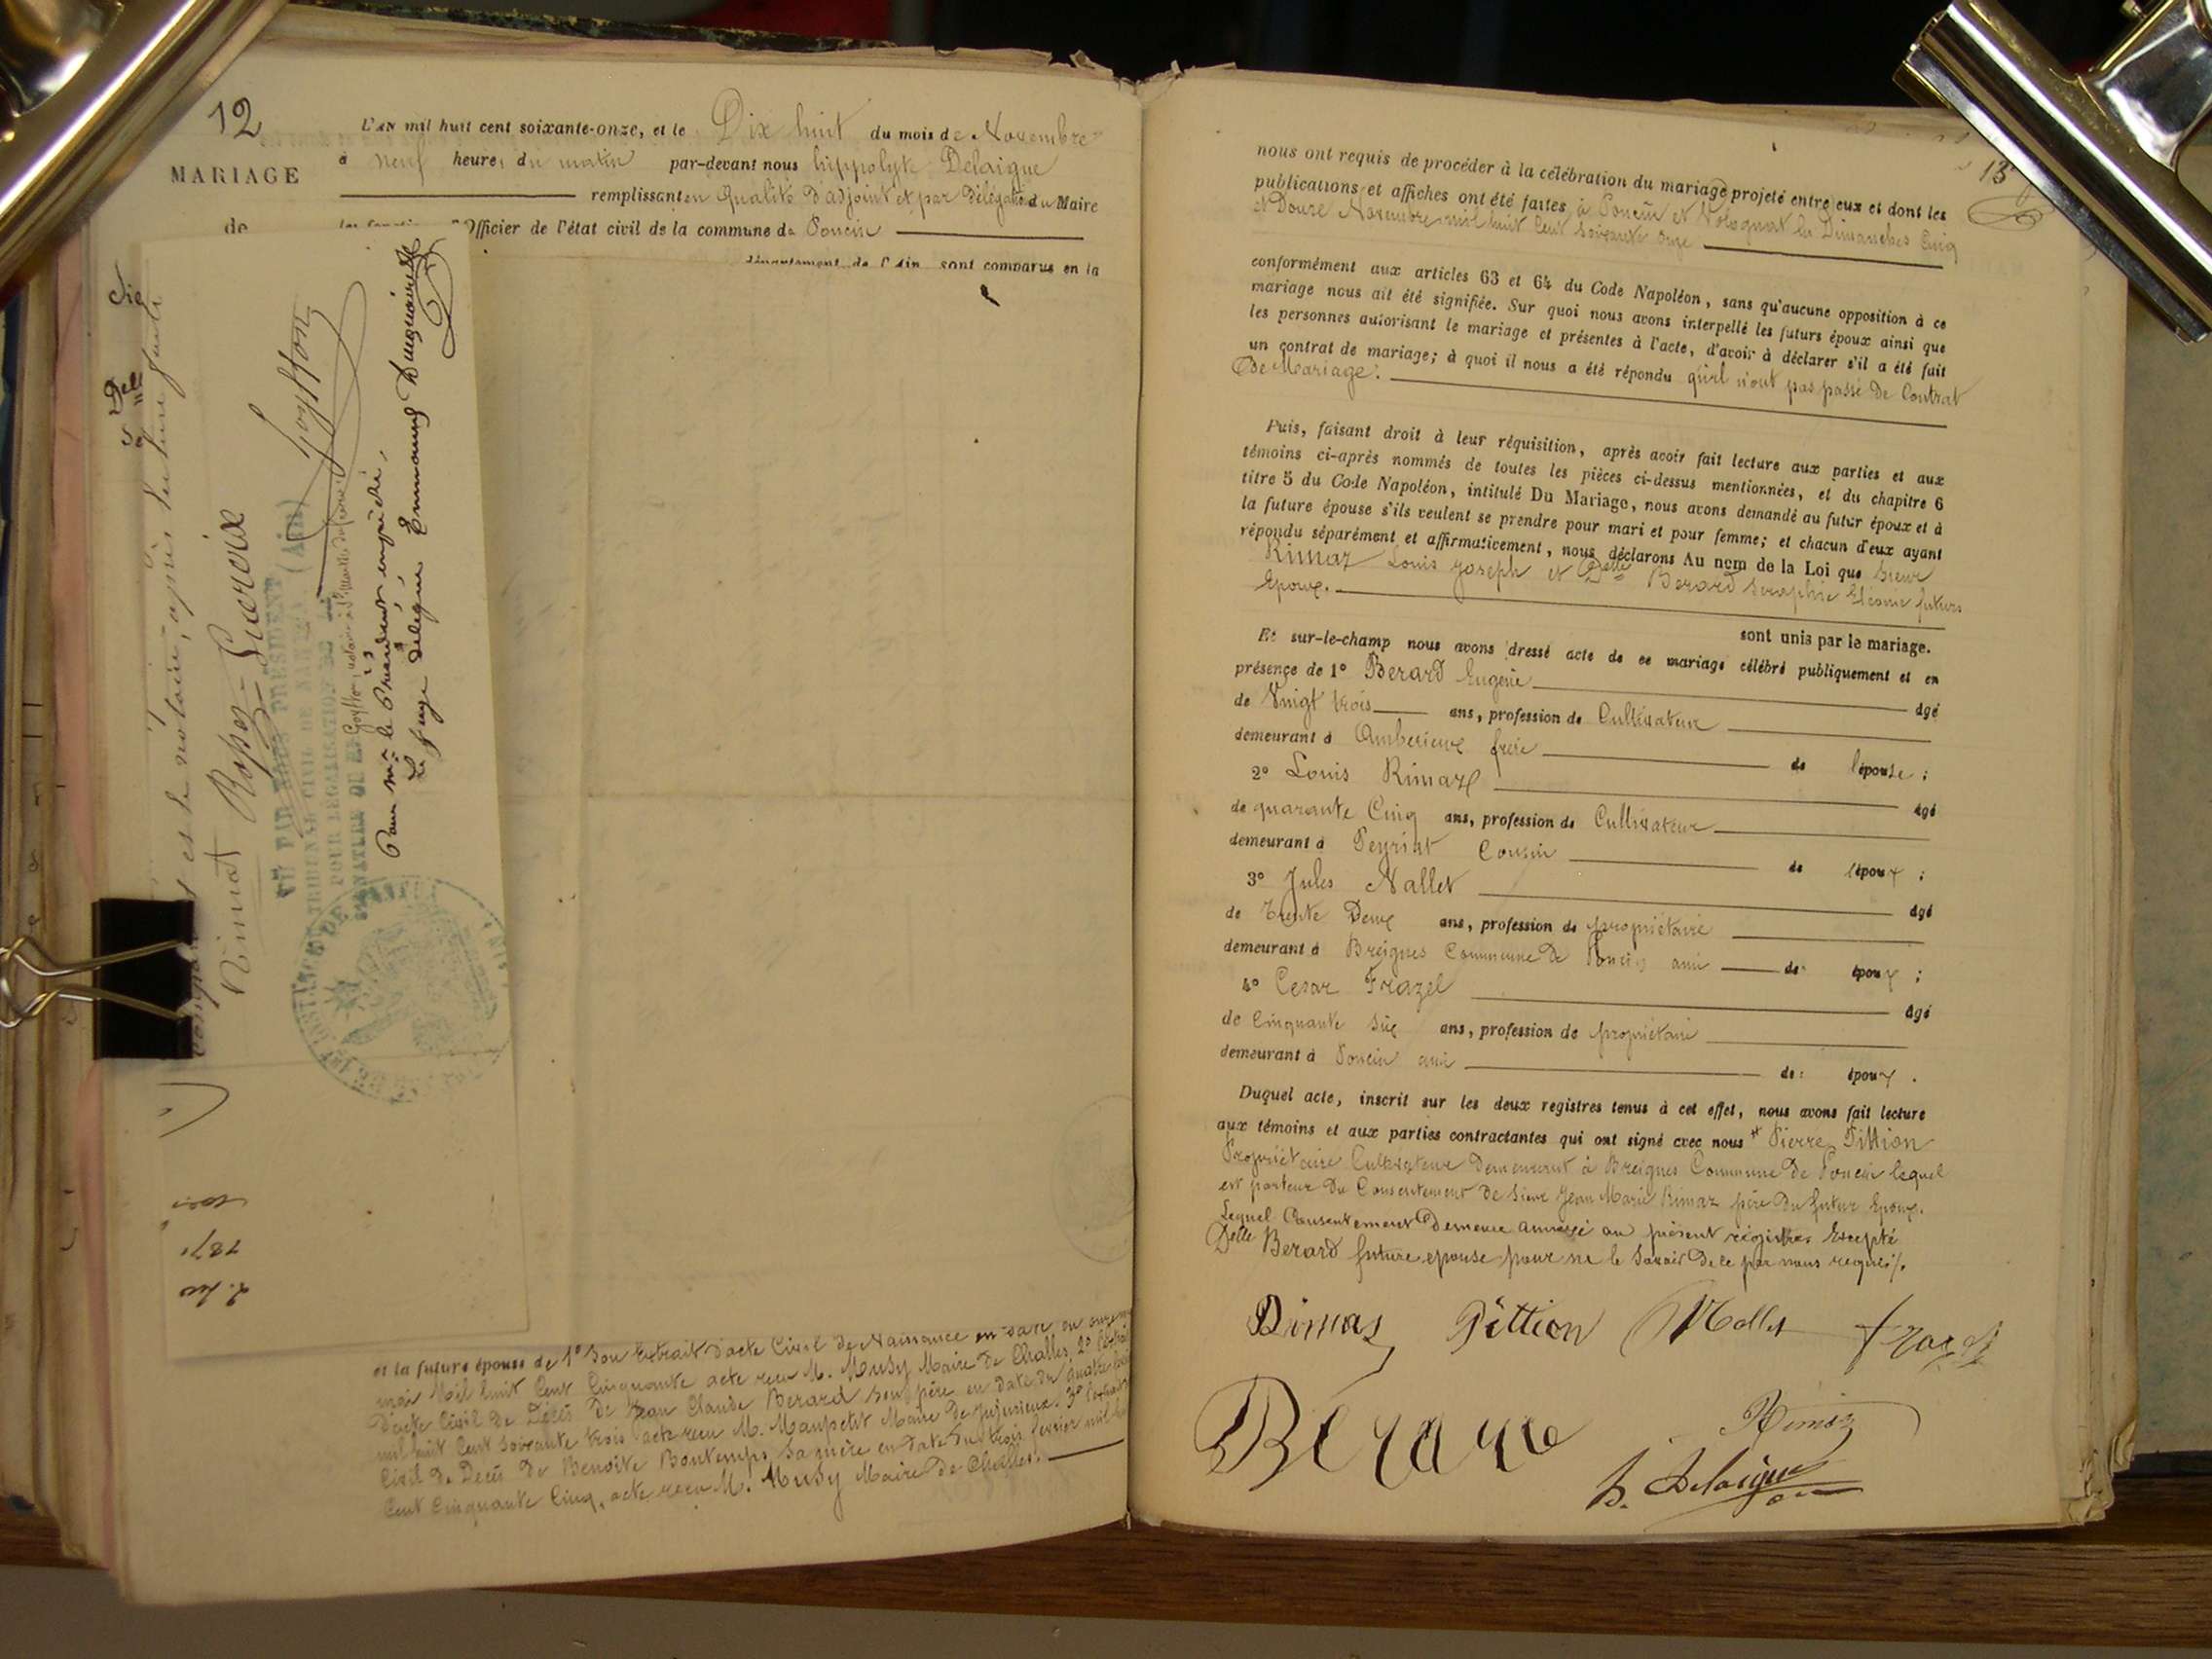 12
MARIAGE
de
L'AN mil huit cent soixante-onze, et le Dix huit du mois de Novembre
à neuf heures du matin par-devant nous hippolyte Delaigue
remplissant en qualité d'adjoint et par délégation du Maire
Officier de l'état civil de la commune de Poncin
département de l'Ain sont comparus en la
Sie
Delle
et le notaire, après lecture faite
Rimat Rosaz Lacroix
Goyffon
VU PAR NOUS PRÉSIDENT
TRIBUNAL CIVIL DE (Ain)
POUR LÉGALISATION DE LA
SIGNATURE DE Me Goyffon, notaire à St Martin du frene
Pour Mr le Président empêché,
Le Juge délégué
1871
et la future épouse de 1° Son Extrait d'acte Civil de Naissance en date du onze
mai Mil huit Cent Cinquante acte reçu M. Musy Maire de Challes, 2° l'extrait
d'acte Civil de Décès de Jean Claude Berard son père en date du quatre
mil huit Cent soixante trois acte reçu M. Maupetit Maire de Jujurieux. 3° l'extrait
Civil de Décès de Benoite Bontemps sa mère en date du trois fevrier mil
Cent Cinquante Cinq, acte reçu M. Musy Maire de Challes.
13
nous ont requis de procéder à la célébration du mariage projeté entre eux et dont les
publications et affiches ont été faites à Poncin et Volognat les Dimanches Cinq
et Douze Novembre mil huit Cent Soixante onze
conformément aux articles 63 et 64 du Code Napoléon, sans qu'aucune opposition à ce
mariage nous ait été signifiée. Sur quoi nous avons interpellé les futurs époux ainsi que
les personnes autorisant le mariage et présentes à l'acte, d'avoir à déclarer s'il a été fait
un contrat de mariage; à quoi il nous a été répondu qu'il n'ont pas passé de Contrat
De Mariage.
Puis, faisant droit à leur réquisition, après avoir fait lecture aux parties et aux
témoins ci-après nommés de toutes les pièces ci-dessus mentionnées, et du chapitre 6
titre 5 du Code Napoléon, intitulé Du Mariage, nous avons demandé au futur époux et à
la future épouse s'ils veulent se prendre pour mari et pour femme; et chacun d'eux ayant
répondu séparément et affirmativement, nous déclarons Au nom de la Loi que Sieur
Rimaz Louis Joseph et Delle Berard Seraphie Eléonie futurs
Epoux.
sont unis par le mariage.
Et sur-le-champ nous avons dressé acte de ce mariage célébré publiquement et en
présence de 1° Berard Eugène âgé
de Vingt trois ans, profession de Cultivateur
demeurant à Amberieux frere de l'épouse;
2° Louis Rimaz âgé
de quarante Cinq ans, profession de Cultivateur
demeurant à Peyriat Cousin de l'époux;
3° Jules Nallet âgé
de Trente Deux ans, profession de propriétaire
demeurant à Breignes Commune de Poncin ami de époux;
4° Cesar Frazel âgé
de Cinquante Six ans, profession de propriétaire
demeurant à Poncin ami de: époux.
Duquel acte, inscrit sur les deux registres tenus à cet effet, nous avons fait lecture
aux témoins et aux parties contractantes qui ont signé avec nous et Pierre Pittion
Propriétaire Cultivateur Demeurant à Breignes Commune de Poncin lequel
est porteur du Consentement de Sieur Jean Marie Rimaz père du futur Epoux.
Lequel Consentement Demeure annexé au présent registre. Excepté
Delle Berard future epouse pour ne le Savoir de ce par nous requis/.
Rimaz Pittion Nallet frazel
Bérard
Rimaz
h. Delaigue